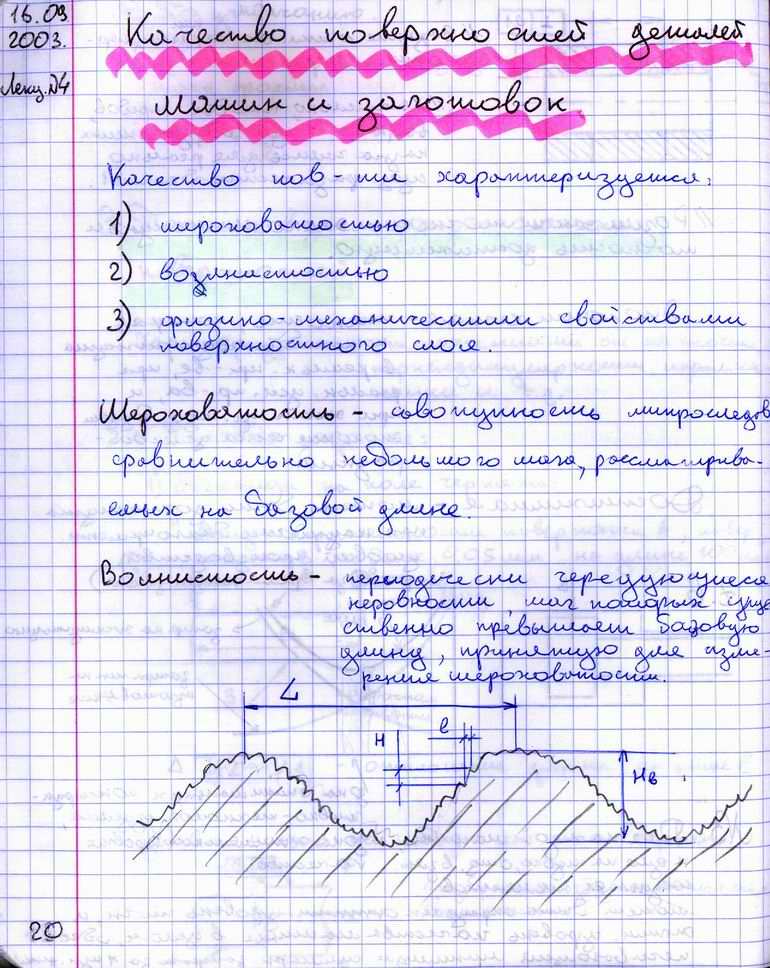 16.09
2003.
Лекц.№4
Качество поверхностей деталей
машин и заготовок
Качество пов-ти характеризуется:
1) шероховатостью
2) волнистостью
3) физико-механическими свойствами
поверхностного слоя.
Шероховатость - совокупность микроследов
сравнительно небольшого шага, рассматрива-
емых на базовой длине.
Волнистость - периодически чередующиеся
неровности, шаг которых суще
ственно превышает базовую
длину, принятую для изме-
рения шероховатости.
L
H
l
Hв
20